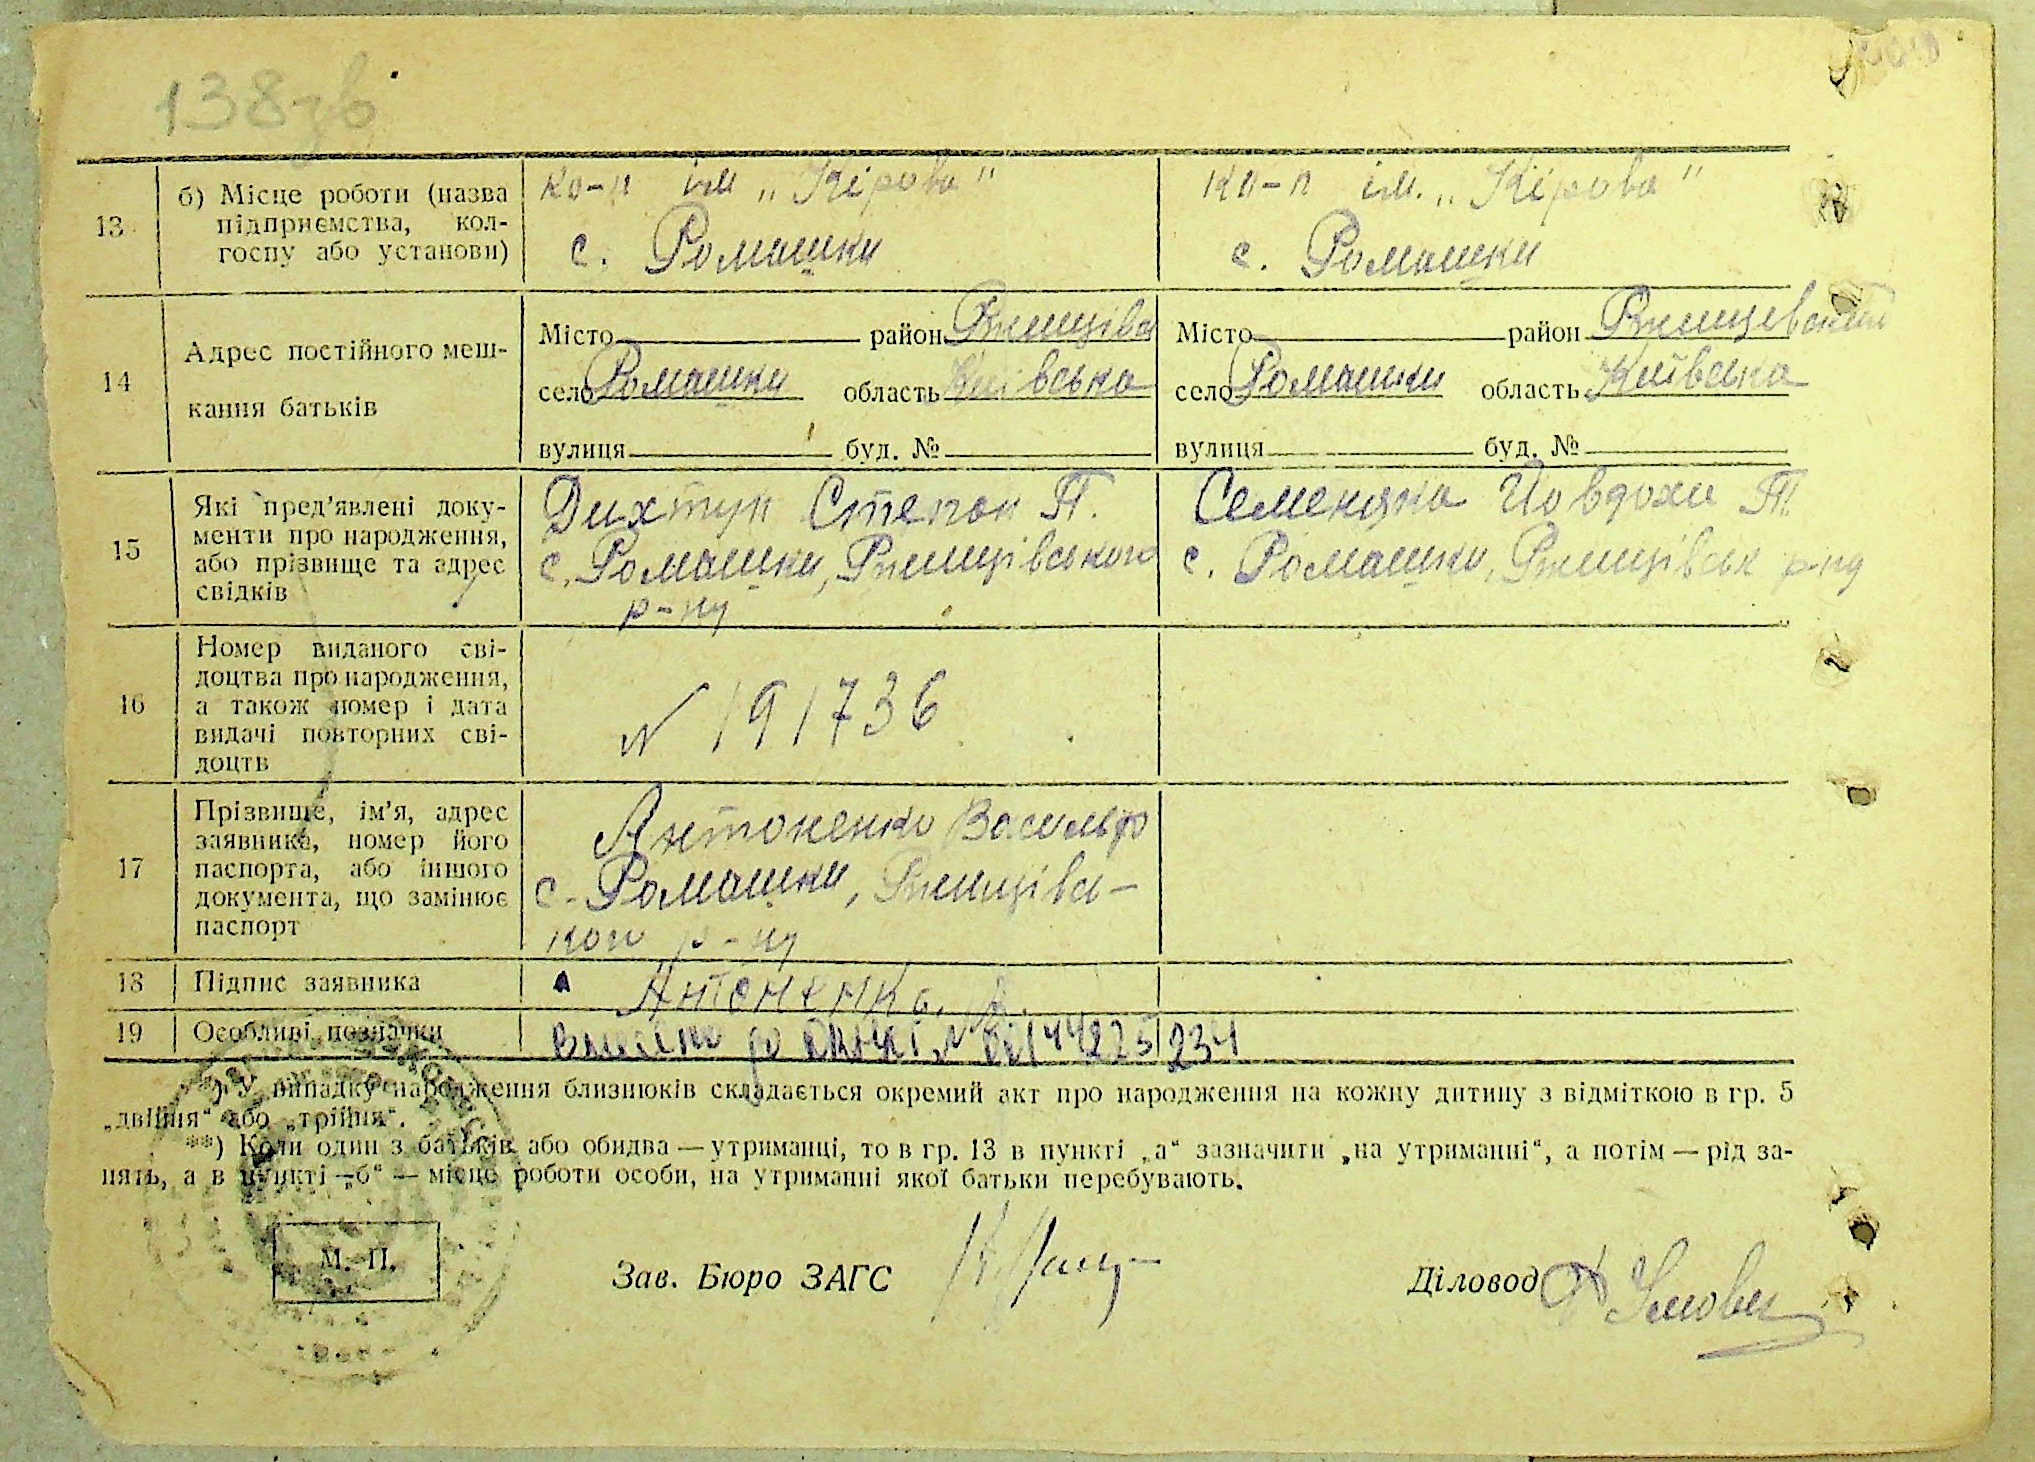 138зв
13
б) Місце роботи (назва підприємства, кол-
госпу або установи)
ко-п ім „Кірова"
с. Ромашки
ко-п ім. „Кірова"
с. Ромашки
14
Адрес постійного меш-
кання батьків
Місто район Ржищівсь
село Ромашки область Київська
вулиця буд. №
Місто район Ржищівський
село Ромашки область Київська
вулиця буд. №
15
Які пред'явлені доку-
менти про народження,
або прізвище та адрес
свідків
Дихтун Степан П.
с. Ромашки, Ржищівського
р-ну
Семеняка Йовдохи
с. Ромашки, Ржищівськ р-ну
16
Номер виданого сві-
доцтва про народження,
а також номер і дата
видачі повторних сві-
доцтв
N 191736
17
Прізвище, ім'я, адрес
заявника, номер його
паспорта, або іншого
документа, що замінює
паспорт
Антоненко Василь
с. Ромашки, Ржищівсь-
кого р-ну
18
Підпис заявника
Антоненко.
19
Особливі позначки
*) У випадку народження близнюків складається окремий акт про народження на кожну дитину з відміткою в гр. 5
„двійня" або „трійня".
**) Коли один з батьків або обидва — утриманці, то в гр. 13 в пункті „а" зазначити „на утриманні", а потім — рід за-
нять, а в пункті „б" — місце роботи особи, на утриманні якої батьки перебувають.
М. П.
Зав. Бюро ЗАГС
Діловод